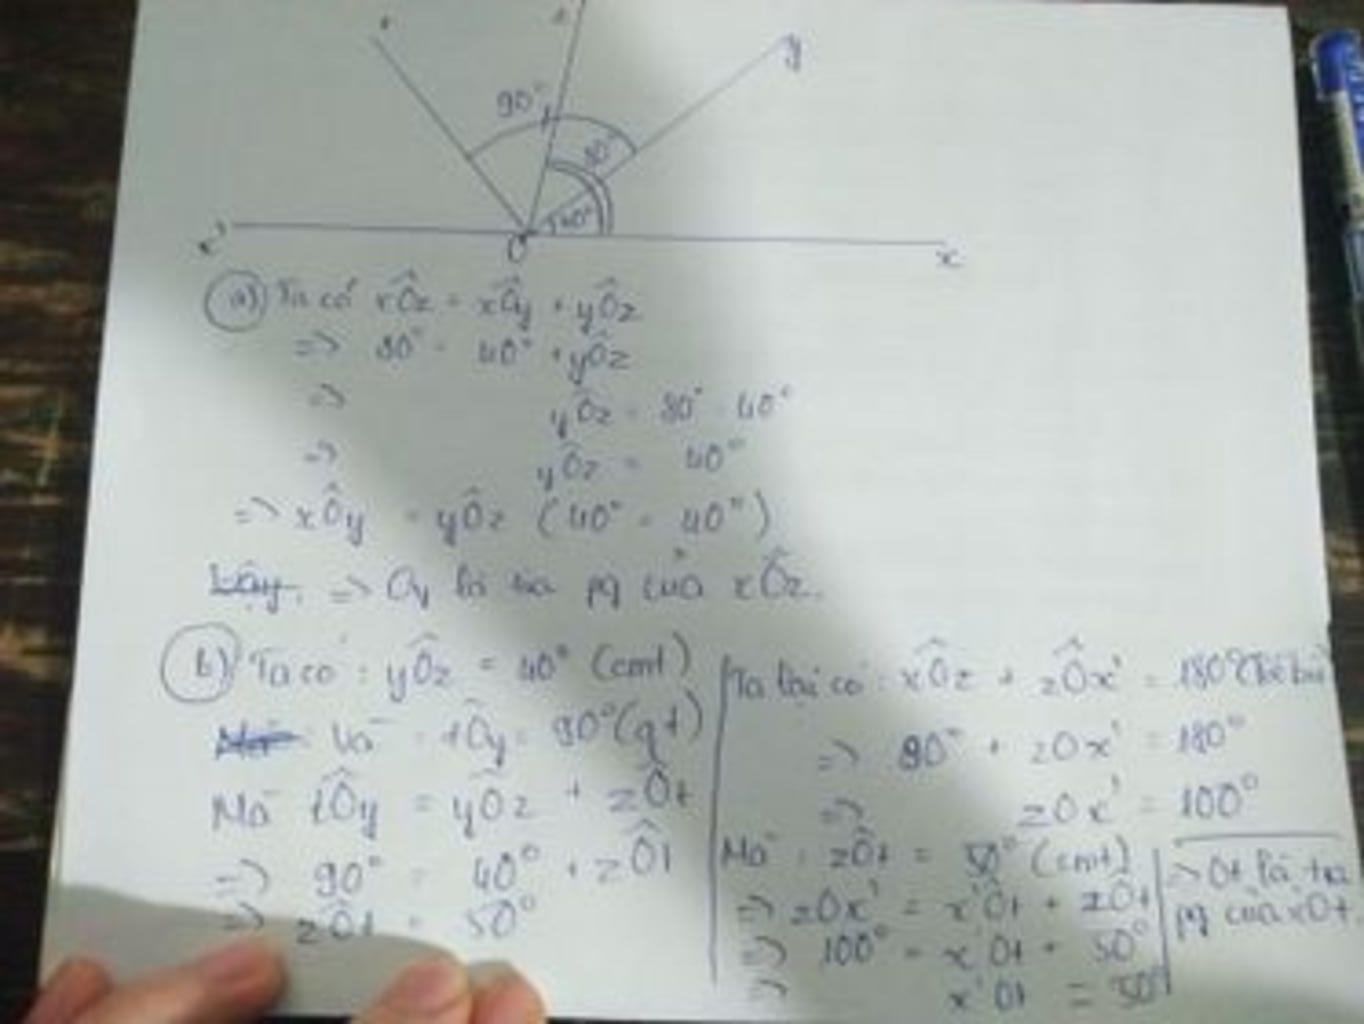 90°
y
80°
40°
x'
O
x
a) Ta có xÔz = xÔy + yÔz
=> 80° = 40° + yÔz
=> yÔz = 80° - 40°
=> yÔz = 40°
=> xÔy = yÔz (40° = 40°)
=> Oy là tia pg của xÔz.
b) Ta có: yÔz = 40° (cmt)
Và tÔy = 90° (gt)
Mà tÔy = yÔz + zÔt
=> 90° = 40° + zÔt
=> zÔt = 50°
Ta lại có: xÔz + zÔx' = 180°
=> 80° + zOx' = 180°
=> zOx' = 100°
Mà: zÔt = 50° (cmt)
=> zOx' = x'Ôt + zÔt
=> 100° = x'Ot + 50°
=> x'Ot = 50°
=> Ot là tia
pg của